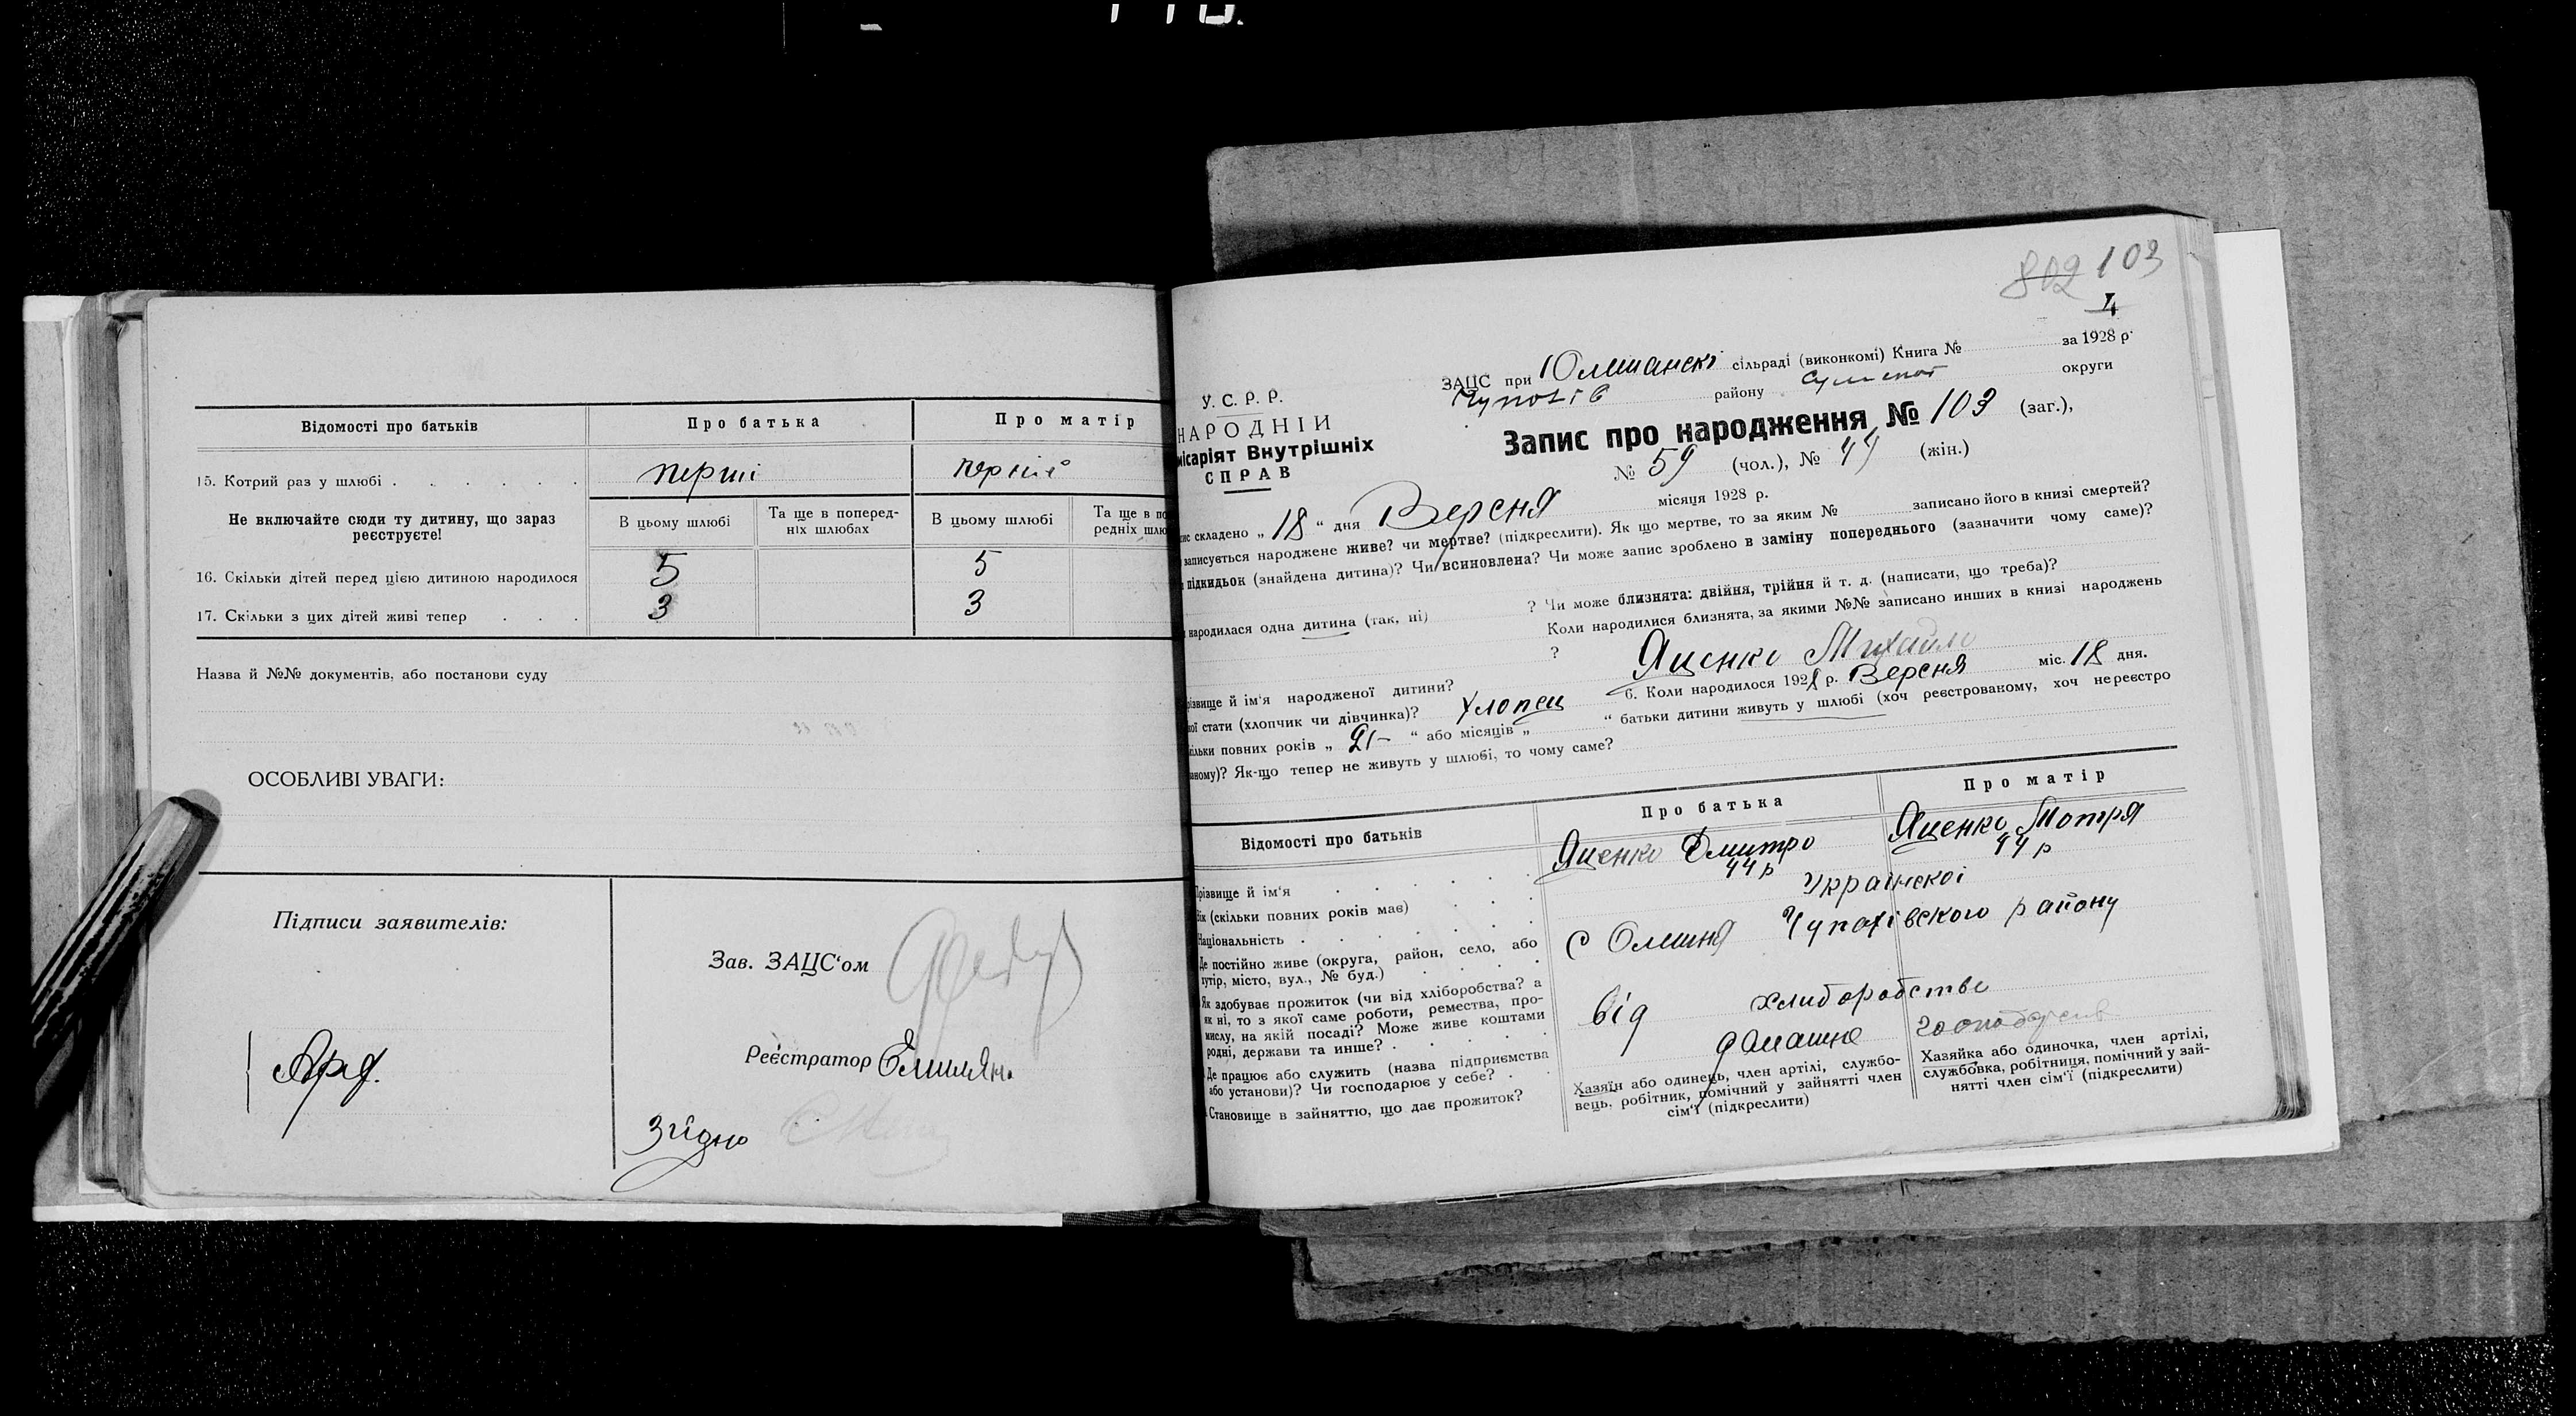 Відомості про батьків
Про батька
Про матір
15. Котрий раз у шлюбі
перші
перший
Не включайте сюди ту дитину, що зараз
реєструєте!
В цьому шлюбі
Та ще в поперед-
ніх шлюбах
В цьому шлюбі
Та ще в по
редніх шлю
16. Скільки дітей перед цією дитиною народилося
5
5
17. Скільки з цих дітей живі тепер
3
3
Назва й №№ документів, або постанови суду
ОСОБЛИВІ УВАГИ:
Підписи заявителів:
Зав. ЗАЦС'ом
Реєстратор
Згідно
802 103
4
У. С. Р. Р.
НАРОДНІЙ
місаріят Внутрішніх
СПРАВ
ЗАЦС при Юлшанскі сільраді (виконкомі) Книга № за 1928 р.
району округи
Запис про народження № 103 (заг.),
№ 59 (чол.), № 44 (жін.)
складено „ 18 “ дня Версня місяця 1928 р.
записується народжене живе? чи мертве? (підкреслити). Як що мертве, то за яким № записано його в книзі смертей?
підкидьок (знайдена дитина)? Чи всиновлена? Чи може запис зроблено в заміну попереднього (зазначити чому саме)?
народилася одна дитина (так, ні) ? Чи може близнята: двійня, трійня й т. д. (написати, що треба)?
Коли народилися близнята, за якими №№ записано инших в книзі народжень
?
різвище й ім'я народженої дитини? Яценко Михайло
стати (хлопчик чи дівчинка)? Хлопец 6. Коли народилося 1928 р. Версня міс. 18 дня.
повних років „ 21- “ або місяців „ “ батьки дитини живуть у шлюбі (хоч реєстрованому, хоч нереєстро
ваному)? Як-що тепер не живуть у шлюбі, то чому саме?
Відомості про батьків
Про батька
Про матір
Прізвище й ім'я
Яценко Дмитро
Яценко Мотря
Вік (скільки повних років має)
44 р
44 р
Національність
Українскої
Де постійно живе (округа, район, село, або
хутір, місто, вул., № буд.)
с Олшня Чупахівского району
Як здобуває прожиток (чи від хліборобства? а
як ні, то з якої саме роботи, ремества, про-
мислу, на якій посаді? Може живе коштами
родні, держави та инше?
від хлиборобства
Де працює або служить (назва підприємства
або установи)? Чи господарює у себе?
домашнє
Становище в зайняттю, що дає прожиток?
Хазяїн або одинець, член артілі, службо-
вець, робітник, помічний у зайнятті член
сім'ї (підкреслити)
Хазяйка або одиночка, член артілі,
службовка, робітниця, помічний у зай-
нятті член сім'ї (підкреслити)